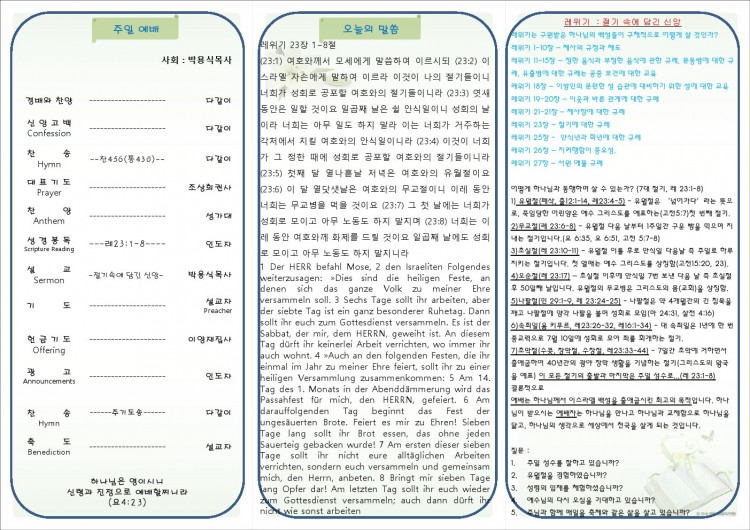 주일 예배
사회 : 박용식목사
경배와 찬양 ------------------ 다같이
신 앙 고 백 ------------------ 다같이
Confession
찬 송 --찬456(통430)-- 다같이
Hymn
대 표 기 도 ------------------ 조상희권사
Prayer
찬 양 ------------------ 성가대
Anthem
성 경 봉 독 ----레23:1-8---- 인도자
Scripture Reading
설 교 -절기속에 담긴 신앙- 박용식목사
Sermon
기 도 ------------------ 설교자
Preacher
헌 금 기 도 ------------------ 이영재집사
Offering
광 고 ------------------ 인도자
Announcements
찬 송 ------주기도송------ 다같이
Hymn
축 도 ------------------ 설교자
Benediction
하나님은 영이시니
신령과 진정으로 예배할찌니라
(요4:23)
오늘의 말씀
레위기 23장 1~8절
(23:1) 여호와께서 모세에게 말씀하여 이르시되 (23:2) 이
스라엘 자손에게 말하여 이르라 이것이 나의 절기들이니
너희가 성회로 공포할 여호와의 절기들이니라 (23:3) 엿새
동안은 일할 것이요 일곱째 날은 쉴 안식일이니 성회의 날
이라 너희는 아무 일도 하지 말라 이는 너희가 거주하는
각처에서 지킬 여호와의 안식일이니라 (23:4) 이것이 너희
가 그 정한 때에 성회로 공포할 여호와의 절기들이니라
(23:5) 첫째 달 열나흗날 저녁은 여호와의 유월절이요
(23:6) 이 달 열닷샛날은 여호와의 무교절이니 이레 동안
너희는 무교병을 먹을 것이요 (23:7) 그 첫 날에는 너희가
성회로 모이고 아무 노동도 하지 말지며 (23:8) 너희는 이
레 동안 여호와께 화제를 드릴 것이요 일곱째 날에도 성회
로 모이고 아무 노동도 하지 말지니라
1 Der HERR befahl Mose, 2 den Israeliten Folgendes
weiterzusagen: »Dies sind die heiligen Feste, an
denen sich das ganze Volk zu meiner Ehre
versammeln soll. 3 Sechs Tage sollt ihr arbeiten, aber
der siebte Tag ist ein ganz besonderer Ruhetag. Dann
sollt ihr euch zum Gottesdienst versammeln. Es ist der
Sabbat, der mir, dem HERRN, geweiht ist. An diesem
Tag dürft ihr keinerlei Arbeit verrichten, wo immer ihr
auch wohnt. 4 »Auch an den folgenden Festen, die ihr
einmal im Jahr zu meiner Ehre feiert, sollt ihr zu einer
heiligen Versammlung zusammenkommen: 5 Am 14.
Tag des 1. Monats in der Abenddämmerung wird das
Passahfest für mich, den HERRN, gefeiert. 6 Am
darauffolgenden Tag beginnt das Fest der
ungesäuerten Brote. Feiert es mir zu Ehren! Sieben
Tage lang sollt ihr Brot essen, das ohne jeden
Sauerteig gebacken wurde! 7 Am ersten dieser sieben
Tage sollt ihr nicht eure alltäglichen Arbeiten
verrichten, sondern euch versammeln und gemeinsam
mich, den Herrn, anbeten. 8 Bringt mir sieben Tage
lang Opfer dar! Am letzten Tag sollt ihr euch wieder
zum Gottesdienst versammeln; auch dann dürft ihr
nicht wie sonst arbeiten
레위기 : 절기 속에 담긴 신앙
레위기는 구원받은 하나님의 백성들이 구체적으로 어떻게 살 것인가?
레위기 1-10장 – 제사의 규정과 제도
레위기 11-15장 – 정한 음식과 부정한 음식에 관한 규례, 문둥병에 대한 규
례, 유출병에 대한 규례는 공중 보건에 대한 교육
레위기 18장 – 이방인의 문란한 성 습관에 대비하기 위한 성에 대한 교육
레위기 19-20장 – 이웃과 바른 관계에 대한 규례
레위기 21-21장 – 제사장에 대한 규례
레위기 23장 – 절기에 대한 규례
레위기 25장 - 안식년과 희년에 대한 규례
레위기 26장 – 지켜행함이 중요성.
레위기 27장 – 서원 예물 규례
어떻게 하나님과 동행하며 살 수 있는가? (7대 절기, 레 23:1-8)
1) 유월절(페삭, 출12:1-14, 레23:4-5) - 유월절은 ‘넘어가다’ 라는 뜻으
로, 죽임당한 어린양은 예수 그리스도를 예표하는(고전5:7)첫 번째 절기.
2)무교절(레 23:6-8) - 유월절 다음 날부터 1주일간 구운 빵을 먹으며 지
내는 절기입니다.(요 6:35, 요 6:51, 고전 5:7-8)
3)초실절(레23:10-11) - 유월절 이후 안식일 다음날 즉 주일로 하루
지키는 절기입니다. 첫 열매는 예수 그리스도를 상징함(고전15:20, 23).
4)오순절(레 23:17) – 초실절 이후에 안식일 7번 보낸 다음 날 즉 초실절
후 50일째 날입니다.
5)나팔절(민 29:1-9, 레 23:24-25) - 나팔절은 약 4개월간의 긴 침묵을
깨고 나팔절에 양각 나팔을 불어 성회로 모임(마 24:31, 살전 4:16)
6)속죄일(욤 키푸르, 레23:26-32, 레16:1-34) - 대 속죄일은 1년에 한 번
종교력으로 7월 10일에 성회로 모여 죄를 회개하는 절기.
7)초막절(수콧, 장막절, 수장절, 레23:33-44) - 7일간 초막에 거하면서
출애굽하여 40년간의 광야 장막 생활을 기념하는 절기(그리스도의 왕국
을 예표) 이 모든 절기의 출발과 마지막은 주일 성수로...(레 23:1-8)
결론적으로
예배는 하나님께서 이스라엘 백성을 출애굽시킨 최고의 목적입니다. 하나
님이 받으시는 예배자는 하나님을 만나고 하나님과 교제함으로 하나님을
닮고, 하나님의 생각으로 세상에서 천국을 살게 되는 것입니다.
질문 :
1. 주일 성수를 잘하고 있습니까?
2. 유월절을 경험하였습니까?
3. 성령의 임재를 체험하셨습니까?
4. 예수님의 다시 오심을 기대하고 있습니까?
5. 주님과 함께 매일을 축제와 같은 삶을 살고 있습니까?